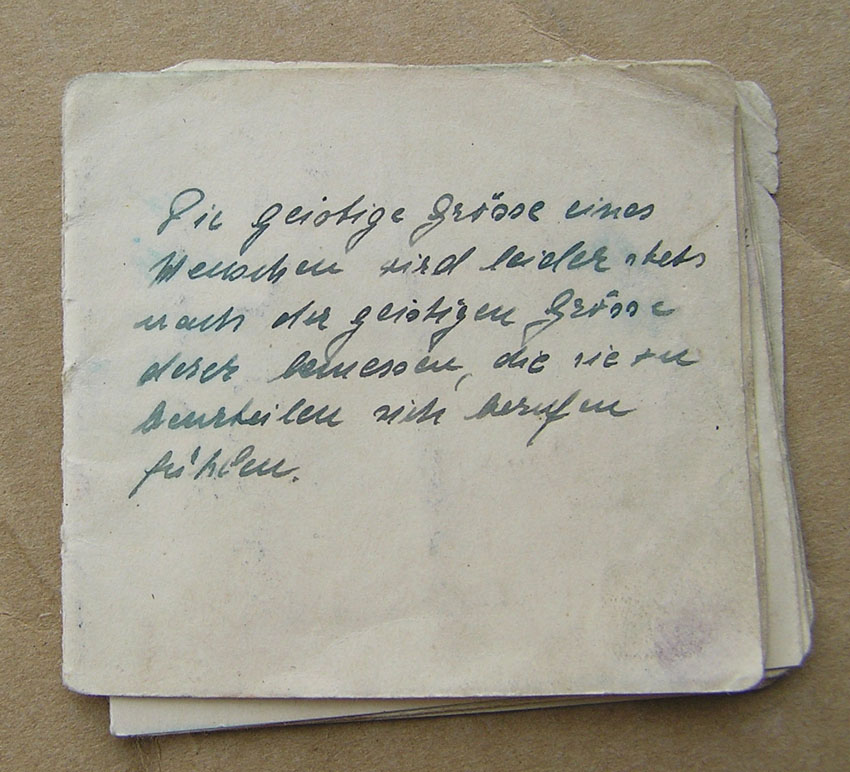 Die geistige Grösse eines
Menschen wird leider stets
nach der geistigen Grösse
derer bemessen, die sie zu
beurteilen sich berufen
fühlen.